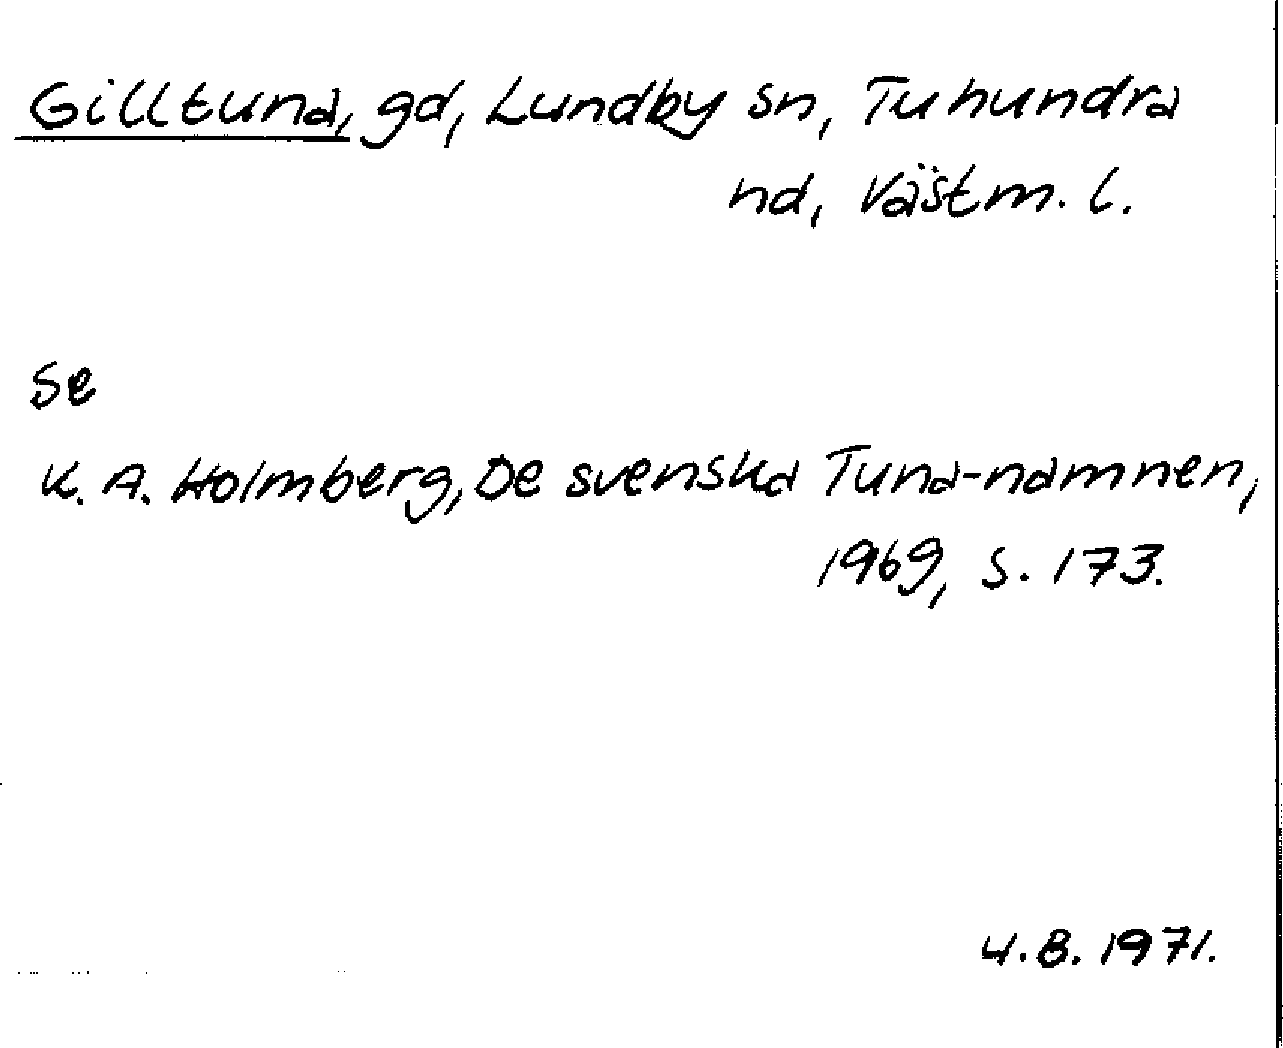 Gilltuna, gd, Lundby sn, Tuhundra
hd, Västm. l.
se
K. A. Holmberg, De svenska Tuna-namnen,
1969, s. 173.
4.8.1971.